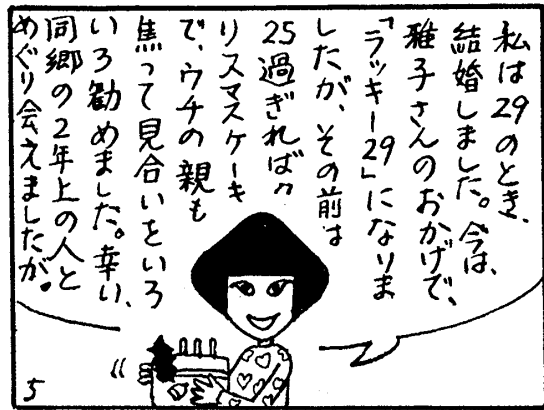 私は29のとき、
結婚しました。今は、
雅子さんのおかげで、
「ラッキー29」になりま
したが、その前は
25過ぎれば〃ク
リスマスケーキ
で、ウチの親も
焦って見合いをいろ
いろ勧めました。幸い、
同郷の2年上の人と
めぐり会えましたが。
5